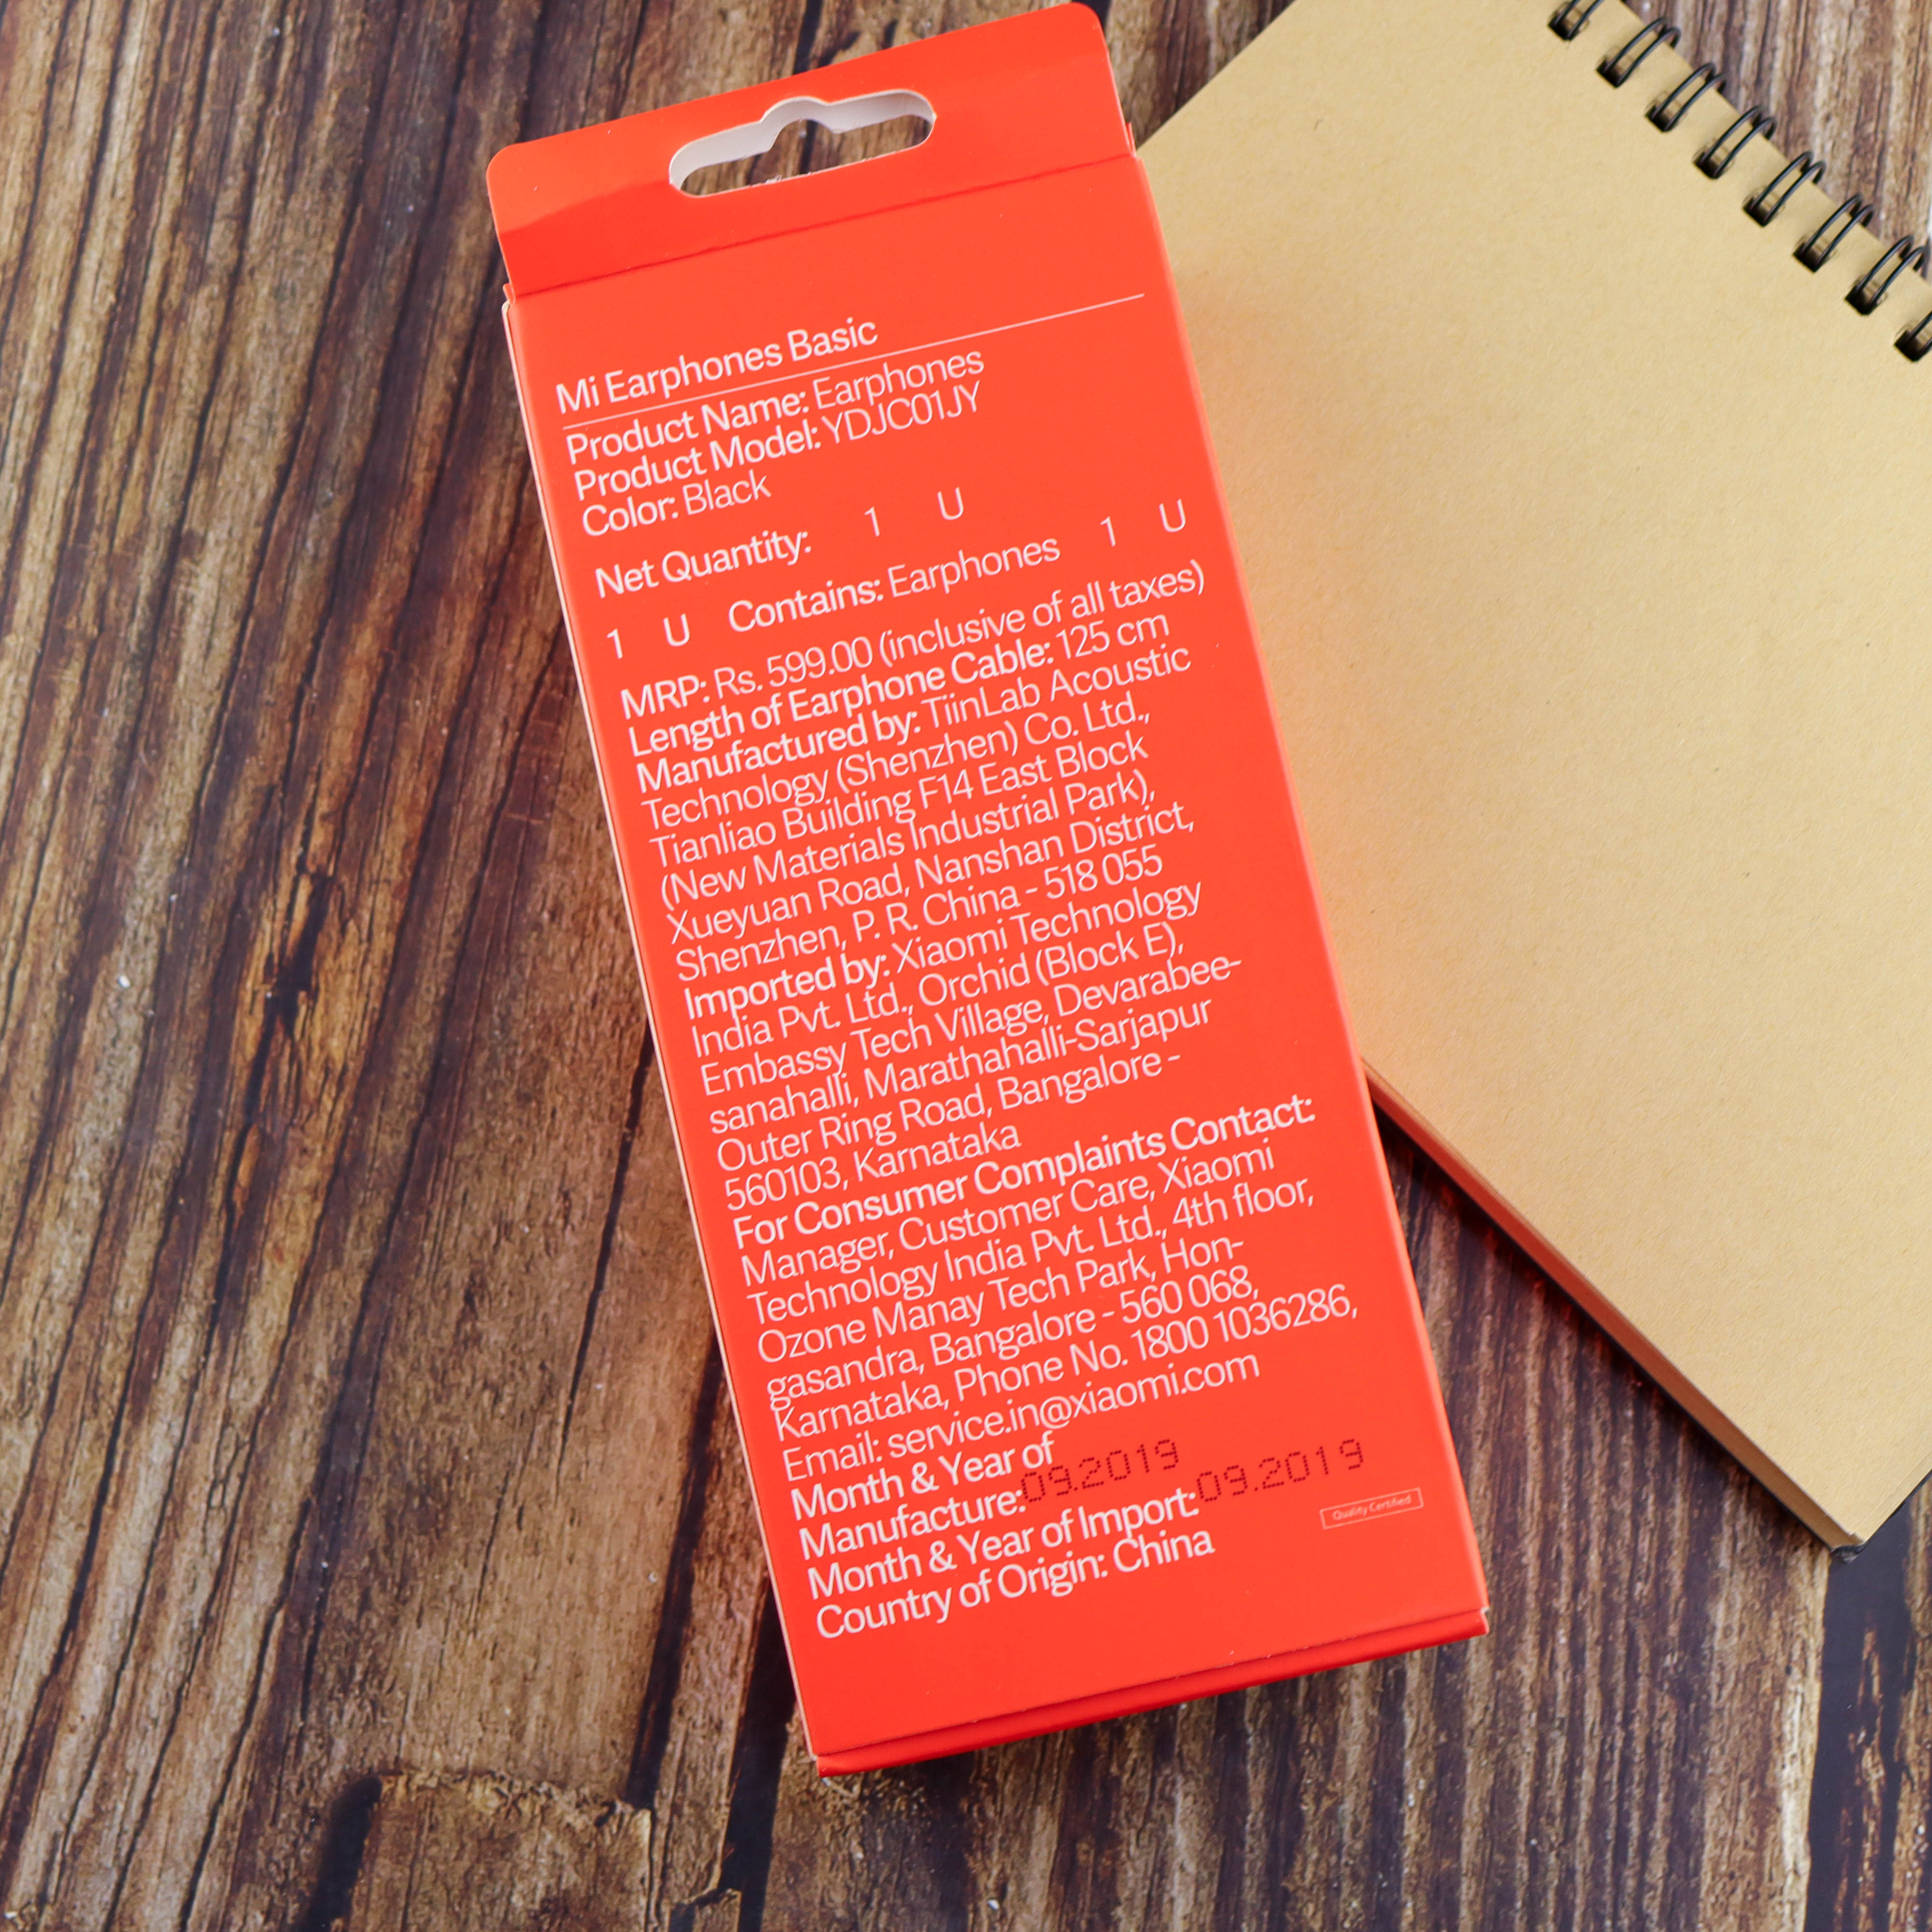 Mi Earphones Basic
Product Name: Earphones
Product Model: YDJC01JY
Color: Black
Net Quantity: 1 U
1 U Contains: Earphones 1 U
MRP: Rs. 599.00 (inclusive of all taxes)
Length of Earphone Cable: 125 cm
Manufactured by: TiinLab Acoustic
Technology (Shenzhen) Co. Ltd.,
Tianliao Building F14 East Block
(New Materials Industrial Park),
Xueyuan Road, Nanshan District,
Shenzhen, P. R. China - 518 055
Imported by: Xiaomi Technology
India Pvt. Ltd., Orchid (Block E),
Embassy Tech Village, Devarabee-
sanahalli, Marathahalli-Sarjapur
Outer Ring Road, Bangalore -
560103, Karnataka
For Consumer Complaints Contact:
Manager, Customer Care, Xiaomi
Technology India Pvt. Ltd., 4th floor,
Ozone Manay Tech Park, Hon-
gasandra, Bangalore - 560 068,
Karnataka, Phone No. 1800 1036286,
Email: service.in@xiaomi.com
Month & Year of
Manufacture: 09.2019
Month & Year of Import: 09.2019
Country of Origin: China
Quality Certified